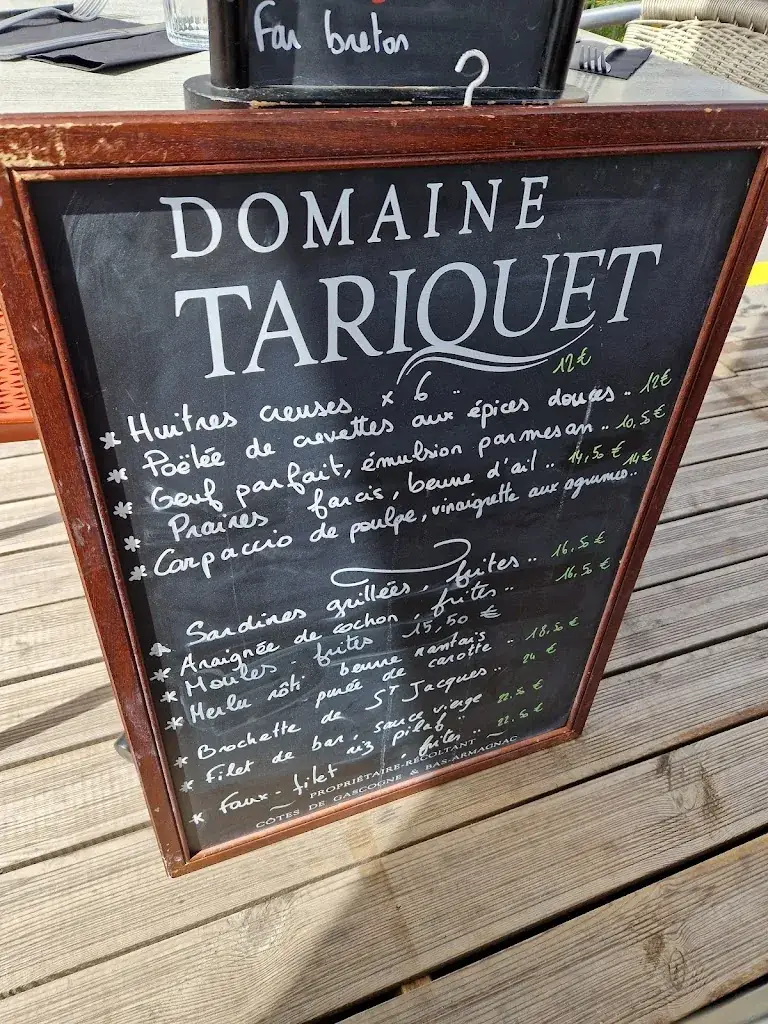 Far breton
DOMAINE
TARIQUET
* Huitres creuses x 6 .. 12€
* Poëlée de crevettes aux épices douces .. 12€
* Oeuf parfait, émulsion parmesan .. 10,50€
* Praires farcis, beurre d'ail .. 14,50€
* Carpaccio de poulpe, vinaigrette aux agrumes .. 14€
* Sardines grillées, frites .. 16,50€
* Araignée de cochon, frites .. 16,50€
* Moules - frites 15,50 €
* Merlu rôti beurre nantais .. 18,50€
purée de carotte
* Brochette de St Jacques .. 24 €
* Filet de bar, sauce vierge 22.50 €
riz pilaf ..
* Faux-filet, frites .. 22.50 €
PROPRIÉTAIRE-RÉCOLTANT
CÔTES DE GASCOGNE & BAS-ARMAGNAC